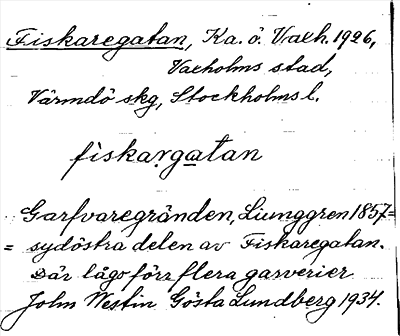 Fiskaregatan, Ka. ö. Vaxh. 1926,
Vaxholms stad,
Värmdö skg, Stockholms l.
fiskargatan
Garfvaregränden, Ljunggren 1857=
= sydöstra delen av Fiskaregatan.
Där lågo förr flera garverier
John Westin Gösta Lundberg 1934.